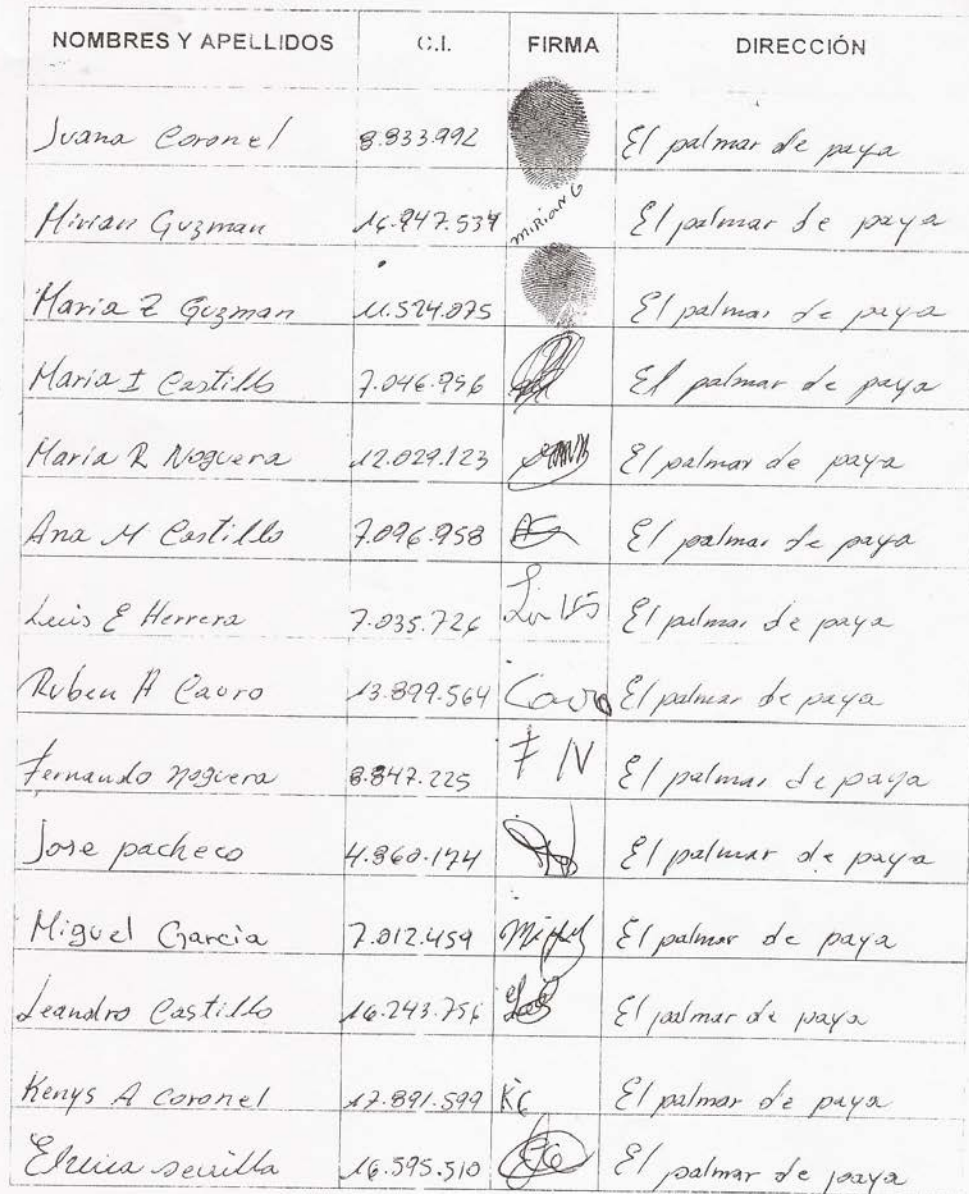 NOMBRES Y APELLIDOS C.I. FIRMA DIRECCIÓN
Juana Coronel 8.833.992 El palmar de paya
Mirian Guzman 16.947.534 Mirian G El palmar de paya
Maria Z Guzman 11.524.075 El palmar de paya
Maria I Castillo 7.046.956 El palmar de paya
Maria R Noguera 12.029.123 El palmar de paya
Ana M Castillo 7.096.958 AC El palmar de paya
Luis E Herrera 7.035.726 El palmar de paya
Ruben A Cavro 13.899.564 Cavro El palmar de paya
Fernando Noguera 8.847.225 F N El palmar de paya
Jose pacheco 4.860.174 El palmar de paya
Miguel Garcia 7.012.459 Miguel El palmar de paya
Leandro Castillo 16.243.756 El palmar de paya
Kenys A Coronel 17.891.599 KC El palmar de paya
sevilla 16.595.510 El palmar de paya